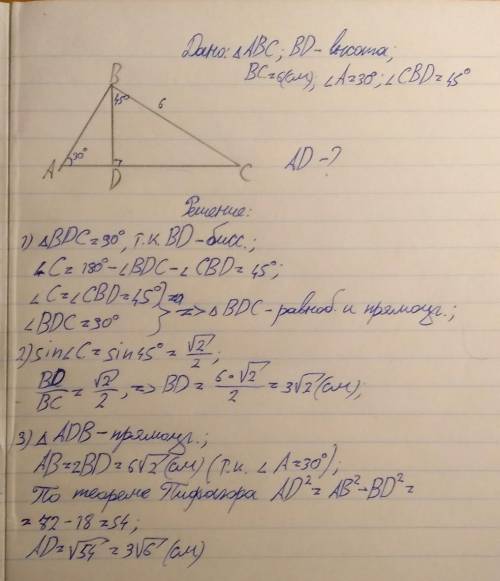 Дано: △ABC; BD - высота;
BC=6(см), ∠A=30°; ∠CBD=45°
B
45°
6
A
30°
D
C
AD - ?
Решение:
1) △BDC=30°, т.к. BD-бисс.;
∠C=180°-∠BDC-∠CBD=45°;
∠C=∠CBD=45°
∠BDC=30° } => △BDC-равноб. и прямоуг.;
2) sin∠C=sin45°=√2/2;
BD/BC=√2/2, => BD=6·√2/2=3√2(см);
3) △ADB-прямоуг.;
AB=2BD=6√2(см) (т.к. ∠A=30°);
По теореме Пифагора AD²=AB²-BD²=
=72-18=54;
AD=√54=3√6(см)